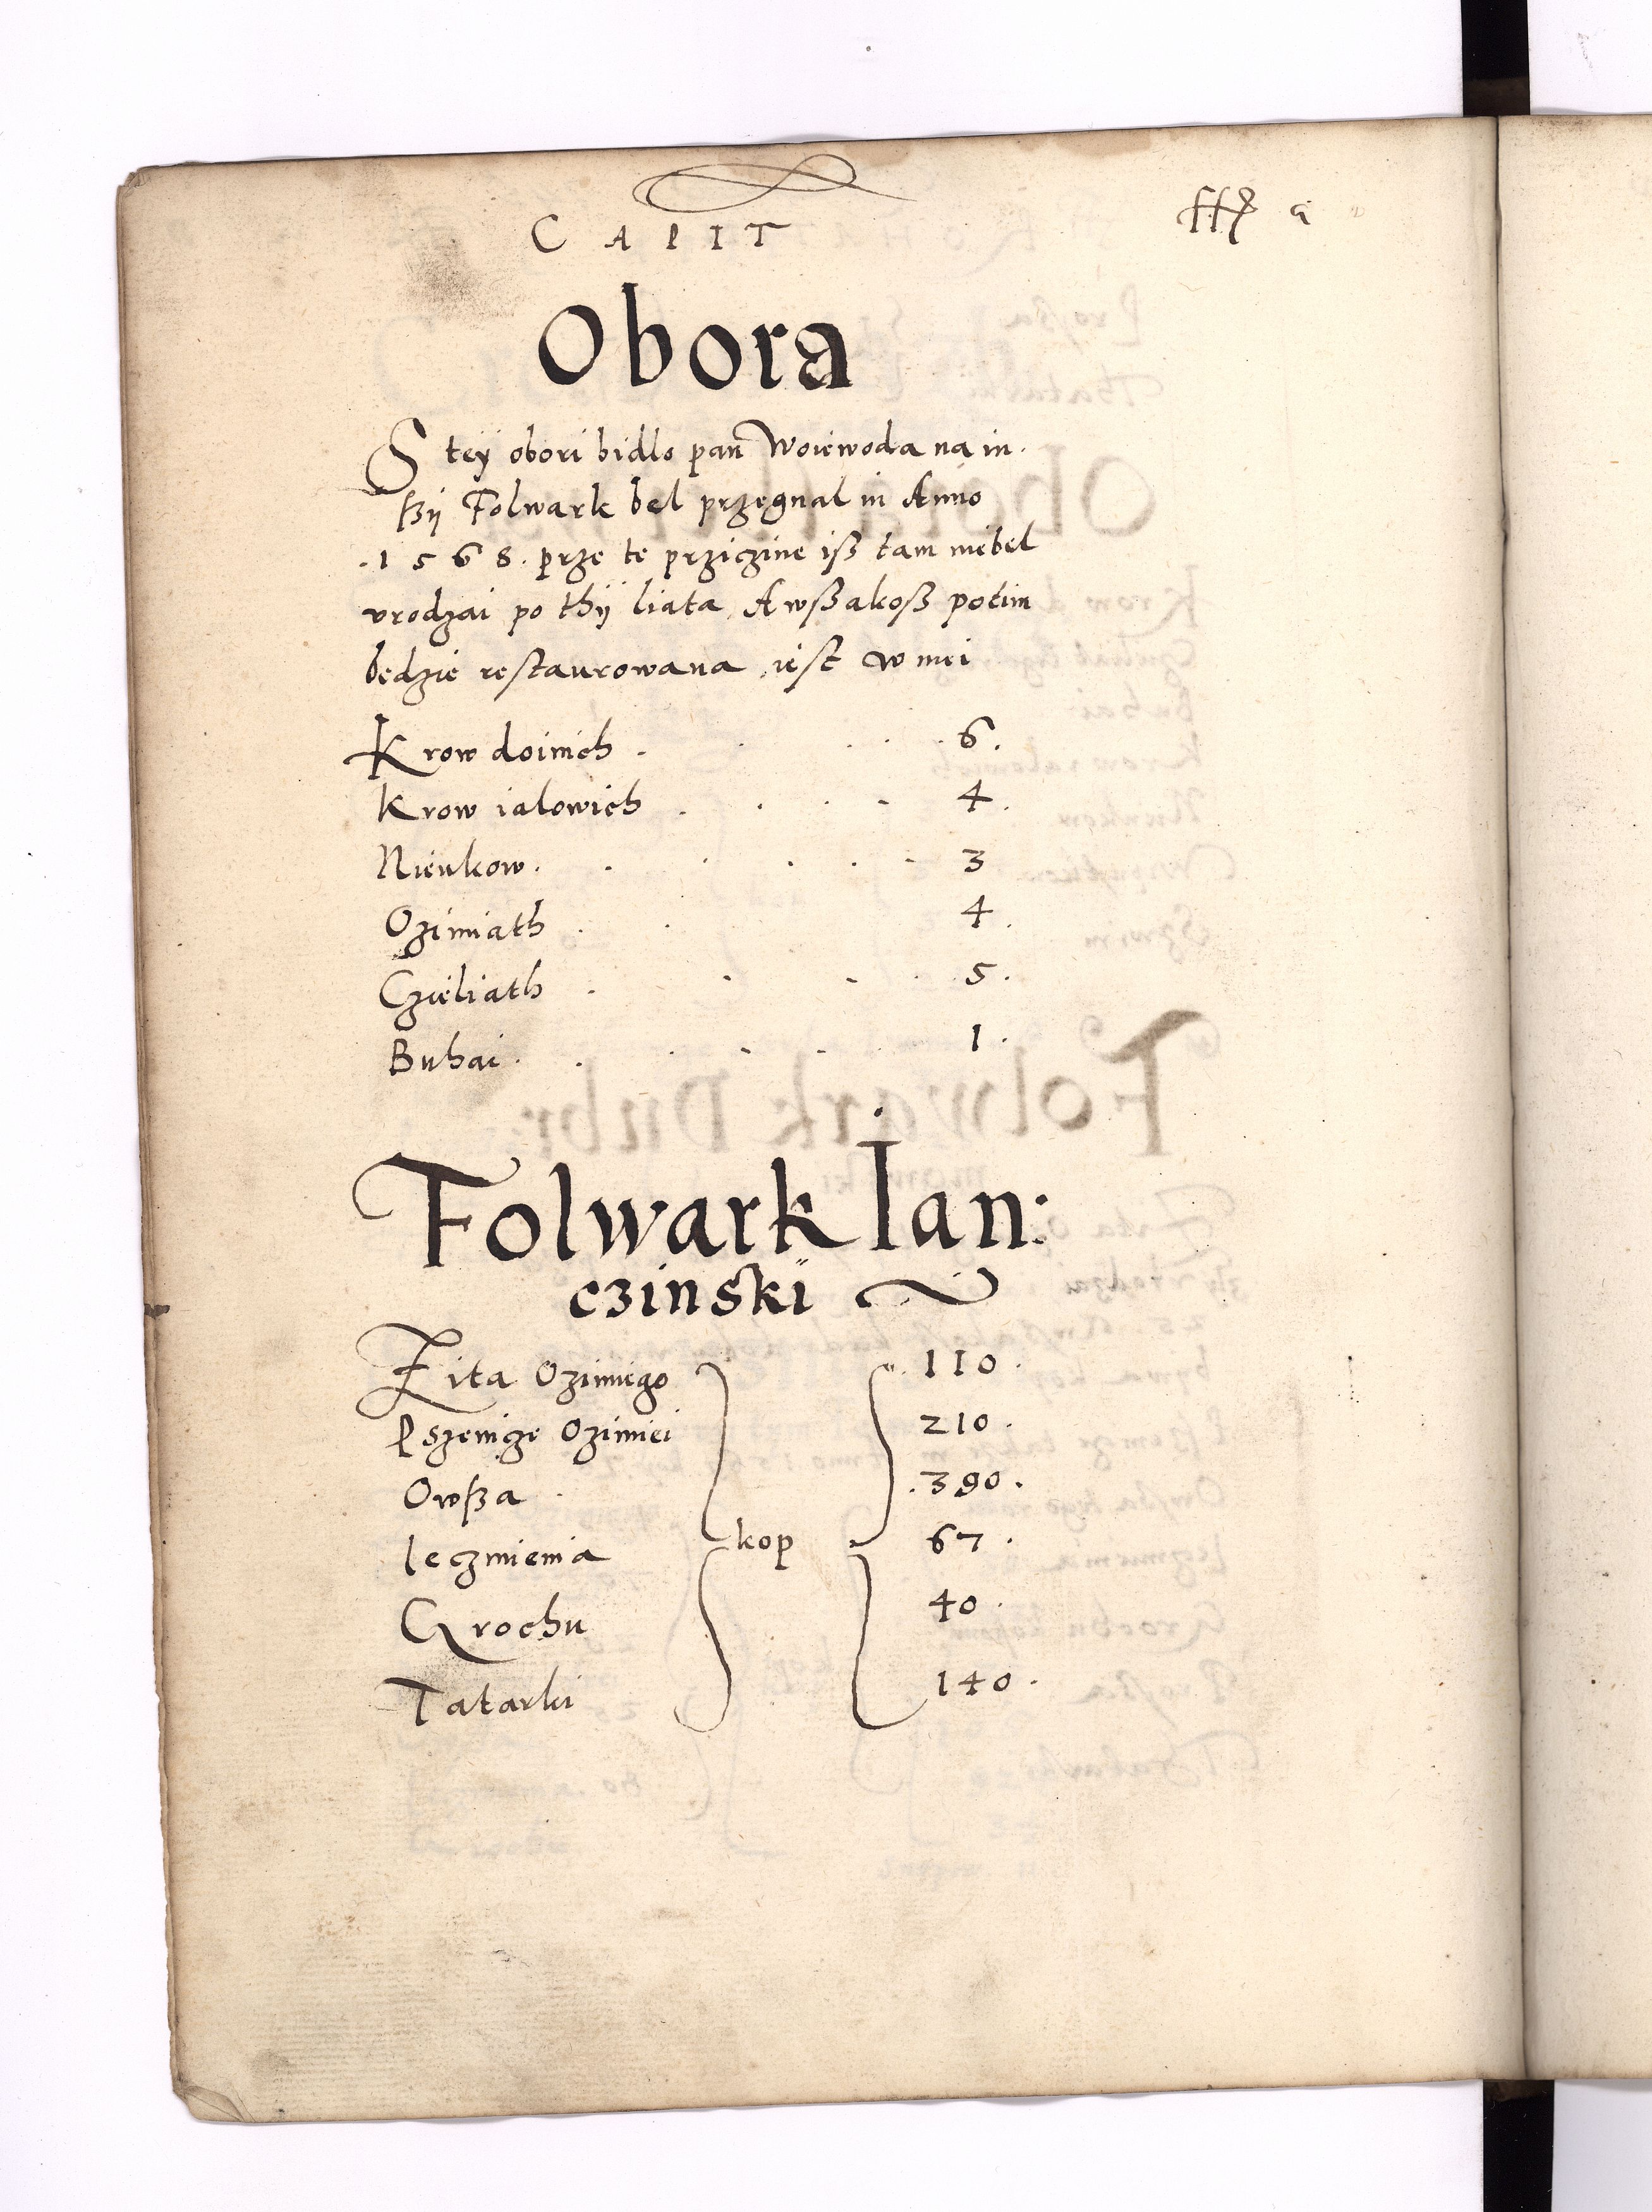 CAPIT
Obora
S teÿ obori bidlo pan Woiewoda na in.
ßÿ Folwark bel przegnal in Anno
.1568. prze te prziczine iß tam niebel
vrodzai po thÿ liata, Awßakoß potim
będzie restaurowana, iest w niei
Krow doinich . . . . 6.
Krow ialowich . . . . 4.
Nieukow. . . . . . 3
Ozimiath . . 4.
Czieliath . . . . 5.
Buhai. . . . . . 1.
Folwark Ian:
czinski
Zita Ozimiego 110.
Pszenicze Ozimiei 210.
Owßa . .390.
kop
Ieczmienia 67.
Grochu 40.
Tatarki 140.